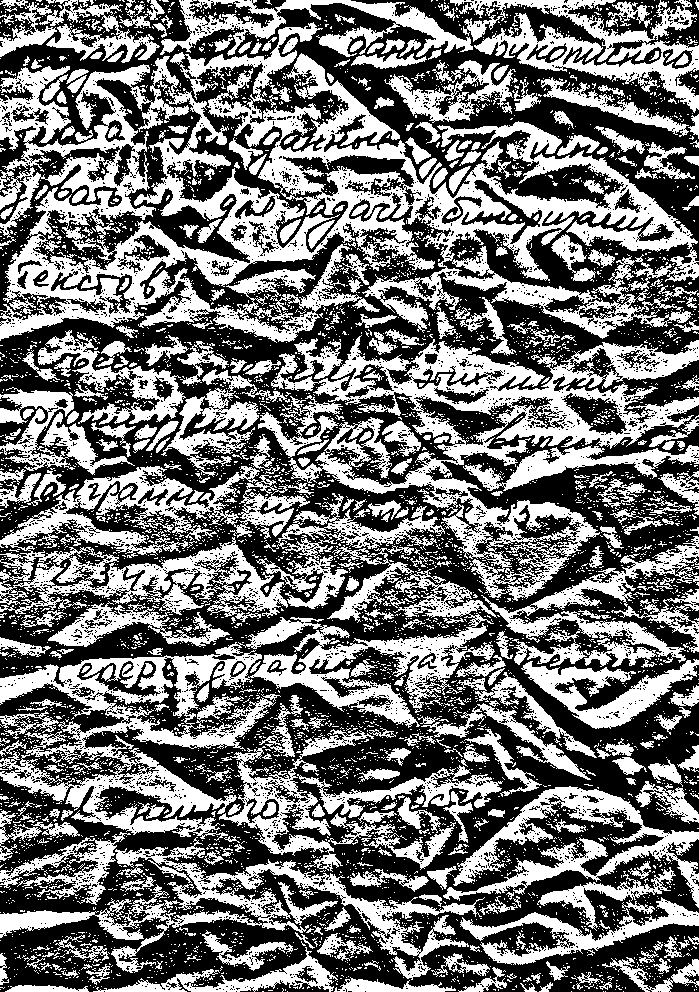 Создаем набор данных рукописного
текста. Эти данные будут исполь
зоваться для задачи бинаризации
текстов.
Съешь же еще этих мягких
французских булок да выпей чаю
Панграмма из
1 2 3 4 5 6 7 8 9 10
Теперь добавим загрязнения
И немного смятости